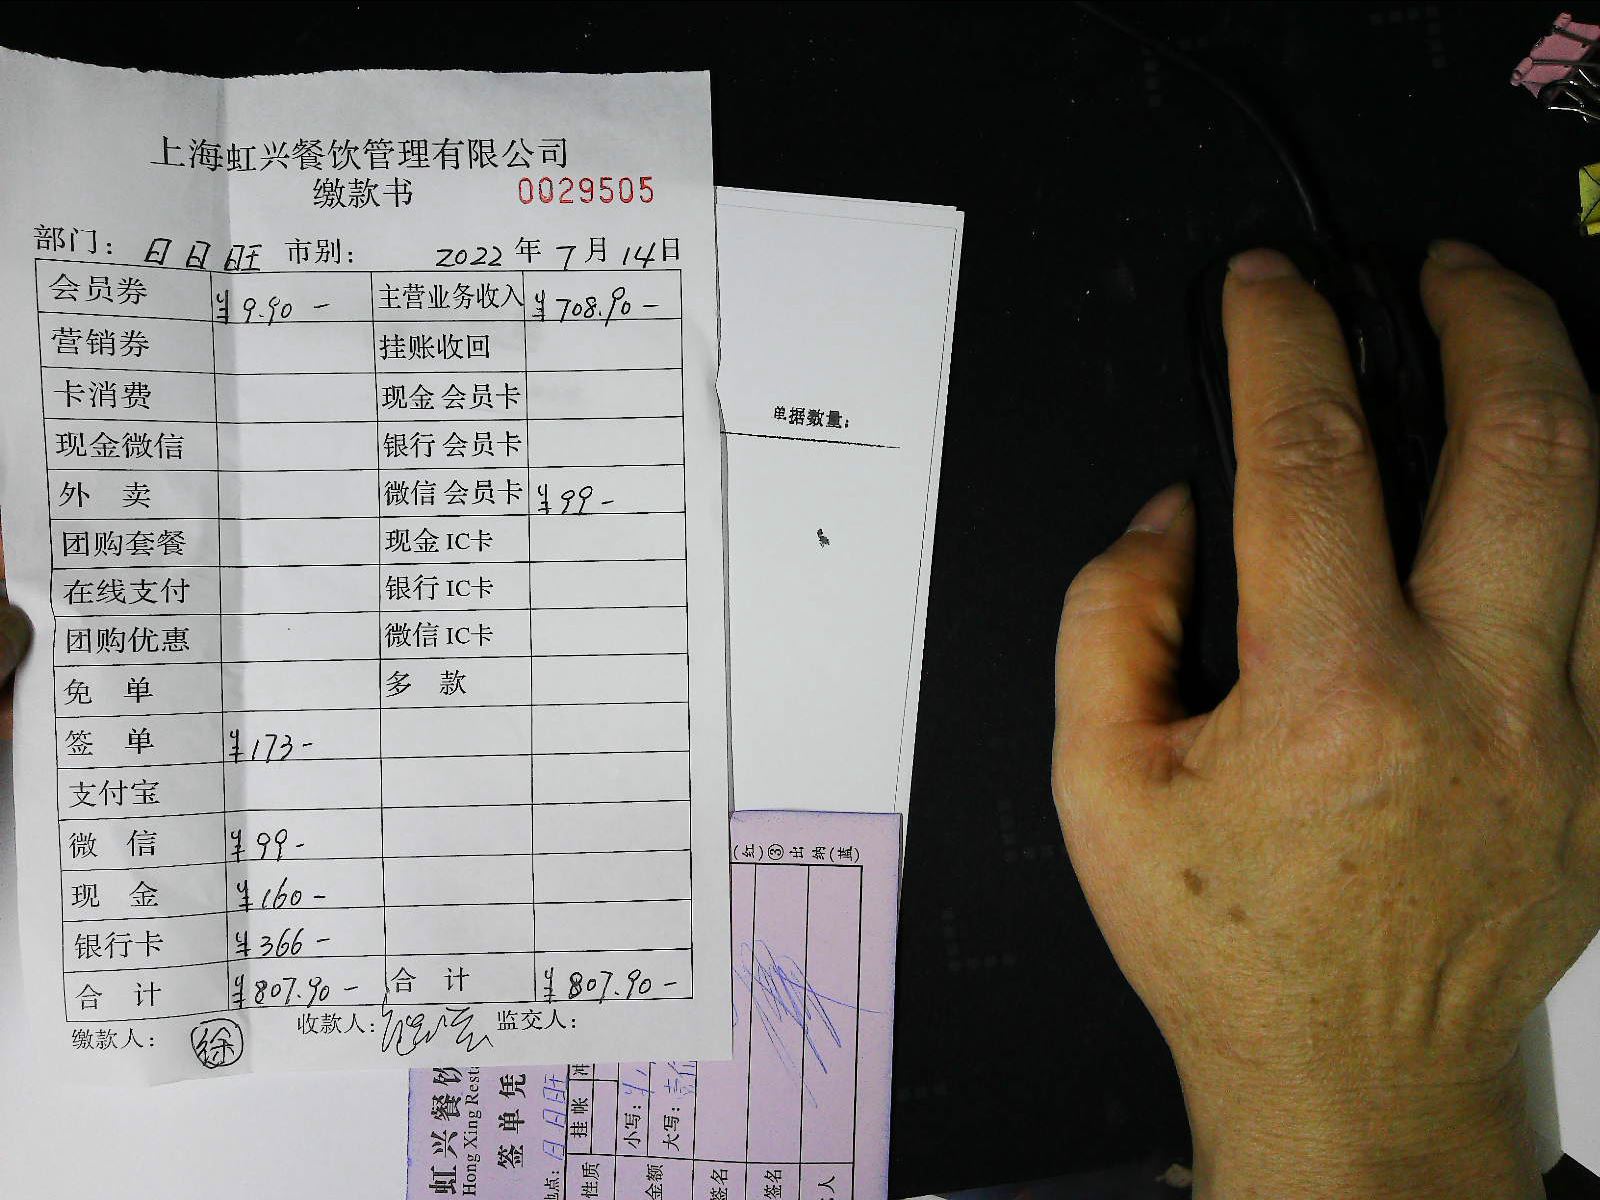 上海虹兴餐饮管理有限公司
缴款书 0029505
部门： 日日旺 市别： 2022年7月14日
会员券 ¥9.90- 主营业务收入 ¥708.90-
营销券 挂账收回
卡消费 现金会员卡
现金微信 银行会员卡
外 卖 微信会员卡 ¥99-
团购套餐 现金IC卡
在线支付 银行IC卡
团购优惠 微信IC卡
免 单 多 款
签 单 ¥173-
支付宝
微 信 ¥99-
现 金 ¥160-
银行卡 ¥366-
合 计 ¥807.90- 合 计 ¥807.90-
缴款人： 徐 收款人： 监交人：
单据数量：
(红)③出纳(蓝)
虹兴餐饮
Hong Xing Rest
签单凭
地点：日日旺
性质 挂帐 冲
金额 小写：
大写：
签名
签名
人